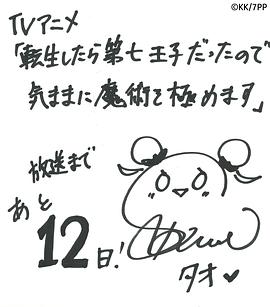 ©KK/7PP
TVアニメ
「転生したら第七王子だったので
気ままに魔術を極めます」
放送まで
あと
12
日!
タオ♥